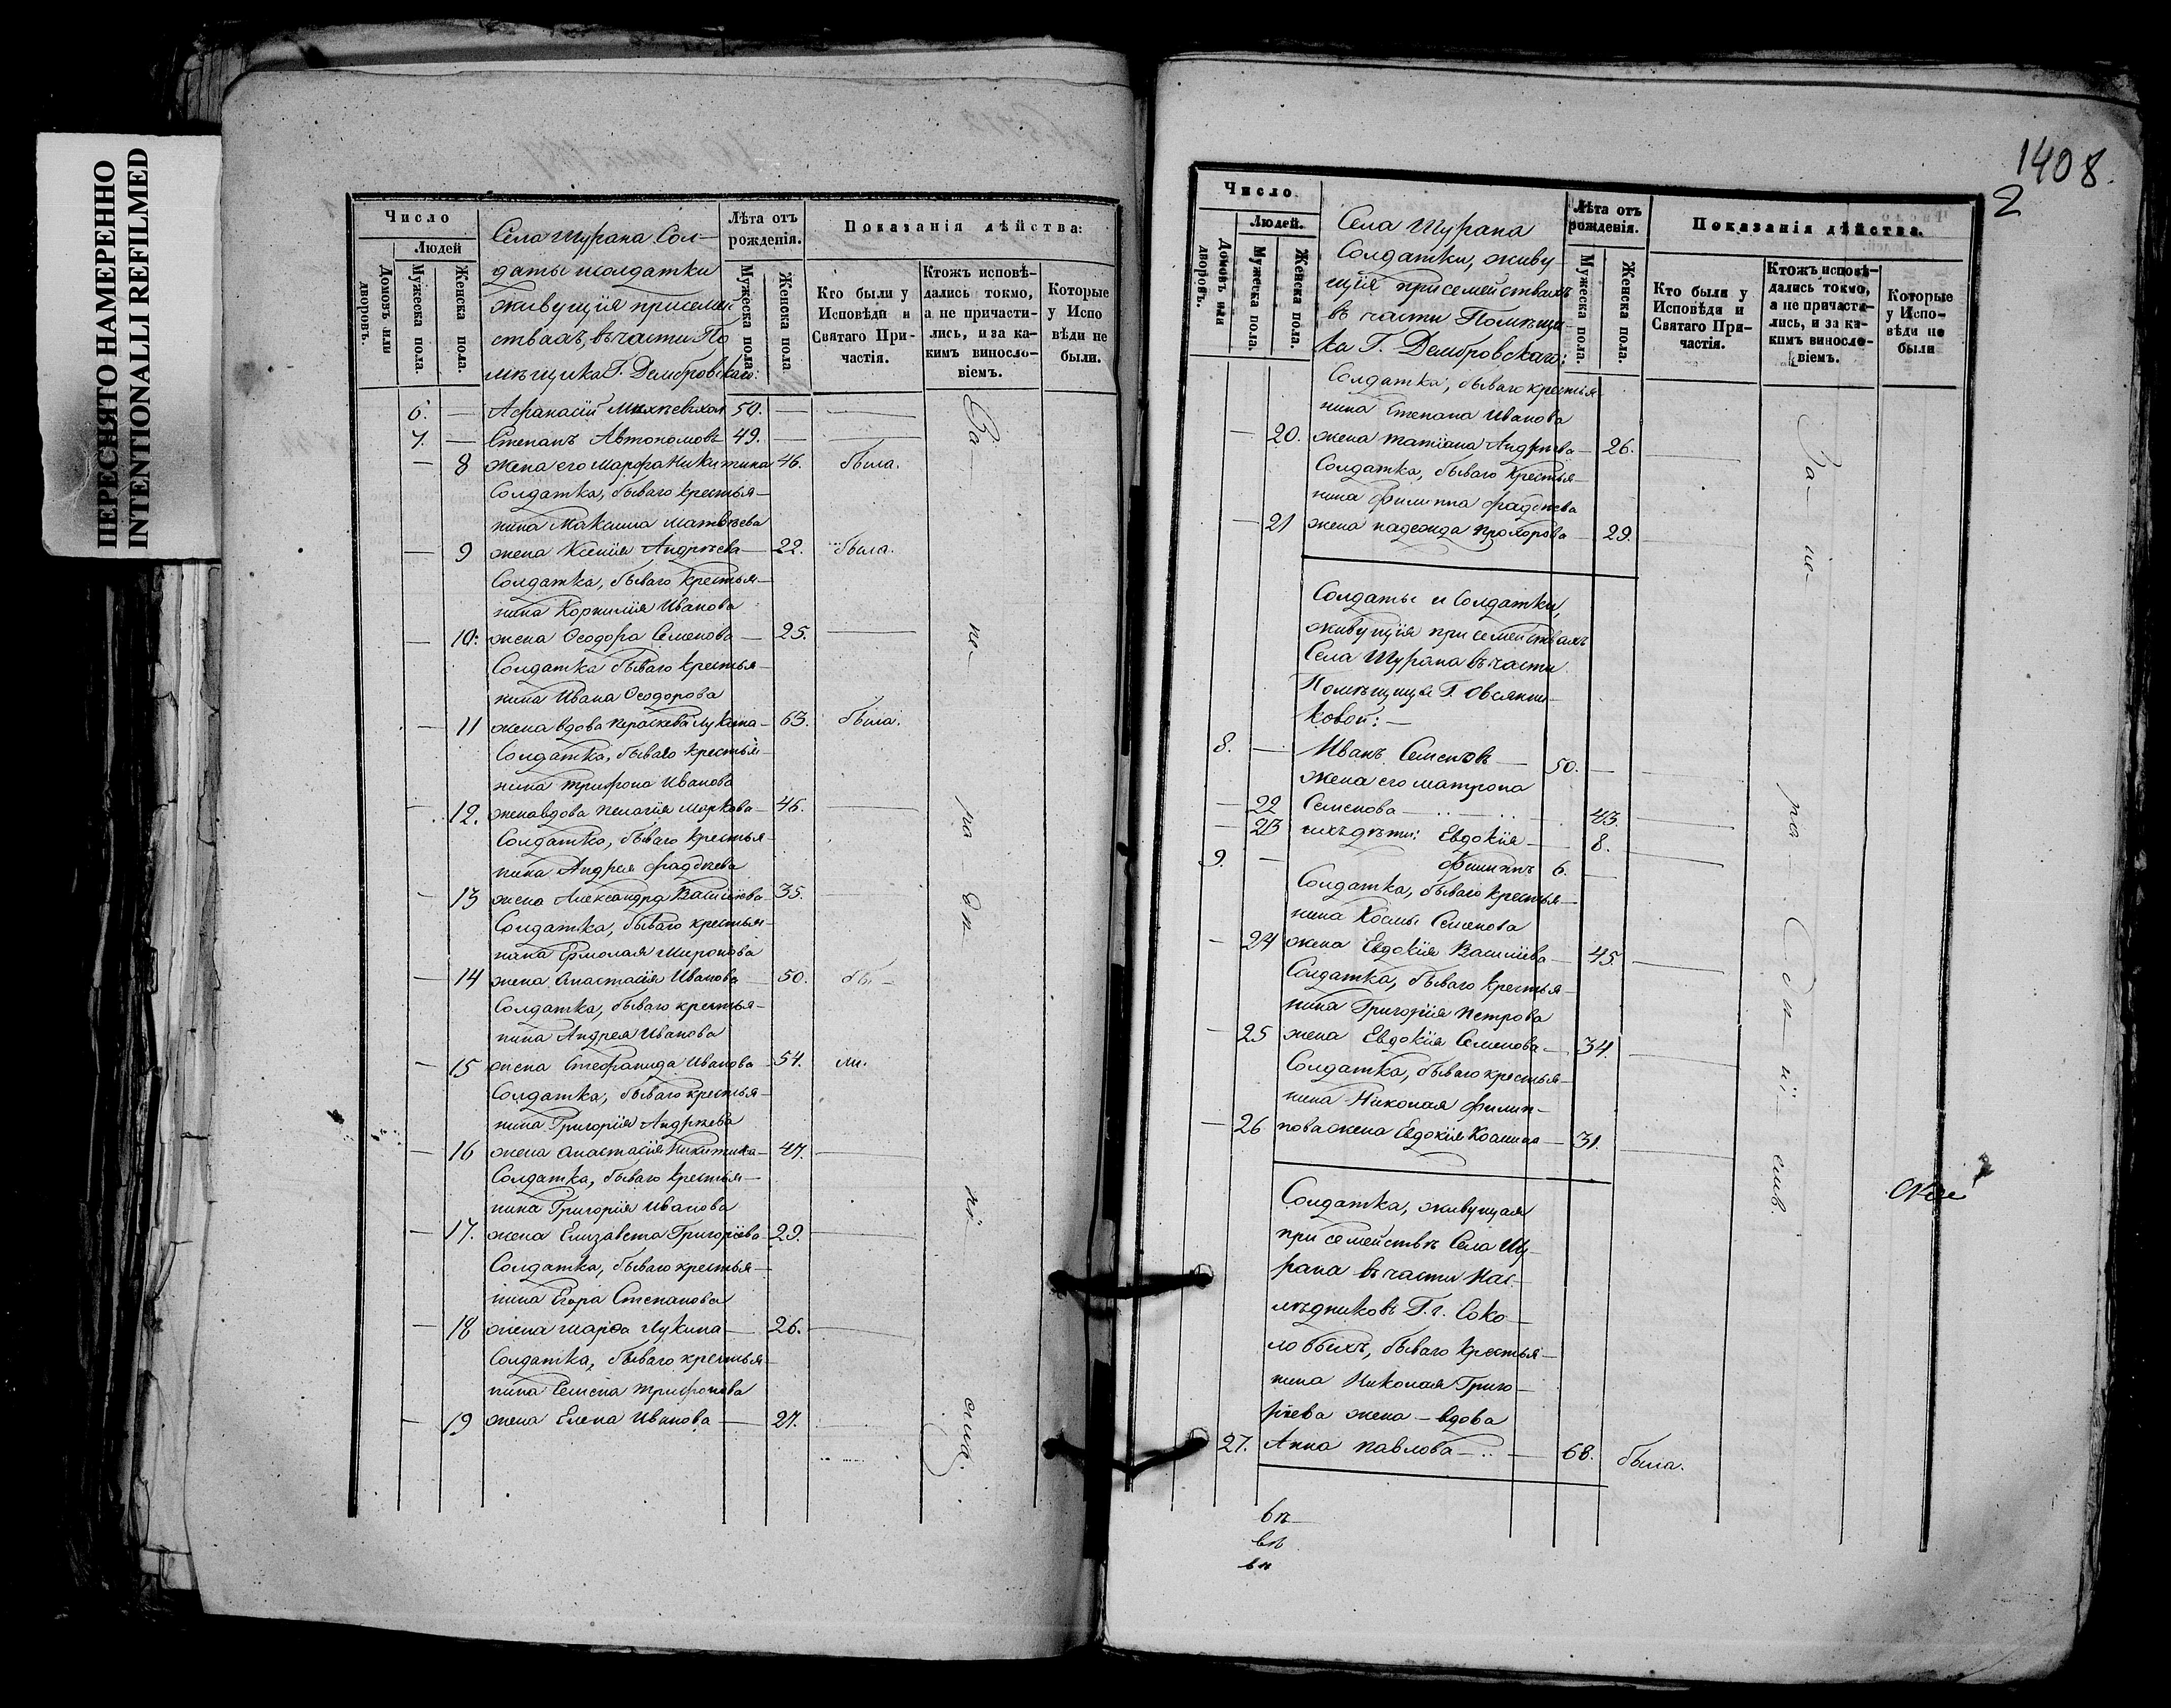 ПЕРЕСНЯТО НАМЕРЕННО
INTENTIONALLI REFILMED
Число
Людей
Домовъ или дворовъ.
Мужеска пола.
Женска пола.
Села Шурана Сол-
даты и солдатки
живущія при семей-
ствахъ, въ части По
мѣщика Г. Дембровскаго:
Лѣта отъ рожденія.
Мужеска пола.
Женска пола
Показанія дѣйства:
Кто были у Исповѣди и Святаго Причастія.
Ктожъ исповѣдались токмо, а не причастились, и за какимъ винословіемъ.
Которые у Исповѣди не были.
6. — Афанасій 50. — —
7. — Степанъ Автономовъ 49. — —
— 8 жена его Марфа Никитина 46. была.
Солдатка, бываго крестья-
нина Максима Матвѣева
— 9 жена Ксенія Андрѣева — 22. была.
Солдатка, бываго крестья-
нина Корнилія Иванова
— 10. жена Ѳеодора Семенова — 25. —
Солдатка бываго крестья-
нина Ивана Ѳеодорова
— 11 жена вдова Параскева Лукина — 63. была.
Солдатка, бываго крестья-
нина Трифона Иванова
— 12. жена вдова Пелагія Маркова — 46. —
Солдатка, бываго крестья-
нина Андрея Фаддѣева
— 13 жена Александра Василіева — 35.
Солдатка, бываго крестья-
нина Ермолая Миронова
— 14 жена Анастасія Иванова — 50. бы-
Солдатка, бываго крестья-
нина Андрея Иванова
— 15 жена Стефанида Иванова — 54. ли.
Солдатка, бываго крестья-
нина Григорія Андрѣева
— 16 жена Анастасія Никитина — 47. —
Солдатка, бываго крестья-
нина Григорія Иванова
— 17. жена Елизавета Григоріева — 29. —
Солдатка, бываго крестья-
нина Егора Степанова
— 18 жена Марфа Лукина — 26. —
Солдатка, бываго крестья-
нина Семена Трифонова
— 19 жена Елена Иванова — 27.
За не- ра- дѣ- ні- емъ.
1408.
2
Число.
Людей.
Домовъ или дворовъ.
Мужеска пола.
Женска пола.
Села Шурана
Солдатки, живу-
щія при семействахъ
въ части Помѣщи
ка Г. Дембровскаго:
Лѣта отъ рожденія.
Мужеска пола.
Женска пола.
Показанія дѣйства.
Кто были у Исповѣди и Святаго Причастія.
Ктожъ исповѣдались токмо, а не причастились, и за какимъ винословіемъ.
Которые у Исповѣди не были
Солдатка, бываго крестья-
нина Степана Иванова
— 20. жена Татіана Андрѣева — 26. —
Солдатка, бываго крестья-
нина Филиппа Фаддѣева
— 21 жена Надежда Прохорова — 29. —
Солдаты и Солдатки,
живущія при семействахъ
Села Шурана въ части
Помѣщицы Г. Овсянни-
ковой: —
8. — Иванъ Семеновъ — 50. —
жена его Матрона
— 22 Семенова — 43. —
— 23 ихъ дѣти: Евдокія — 8. —
9. — Филиппъ 6. —
Солдатка, бываго крестья-
нина Космы Семенова
— 24 жена Евдокія Василіева — 45. —
Солдатка, бываго крестья-
нина Григорія Петрова
— 25 жена Евдокія Семенова — 34 —
Солдатка, бываго крестья-
нина Николая Филип-
— 26 пова жена Евдокія Козмина — 31. —
Солдатка, живущая
при семействѣ Села Шу-
рана въ части Нас-
лѣдниковъ Г. г. Соко-
ловыхъ, бываго крестья-
нина Николая Григо-
ріева жена — вдова
27. Анна Павлова — 68. была.
За- не- ра- дѣ- ні- емъ.